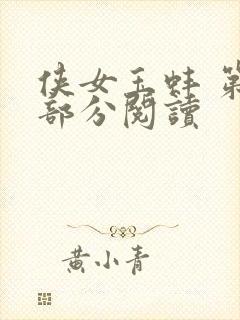 侠女玉蚌 第
部分阅讀
黄小青